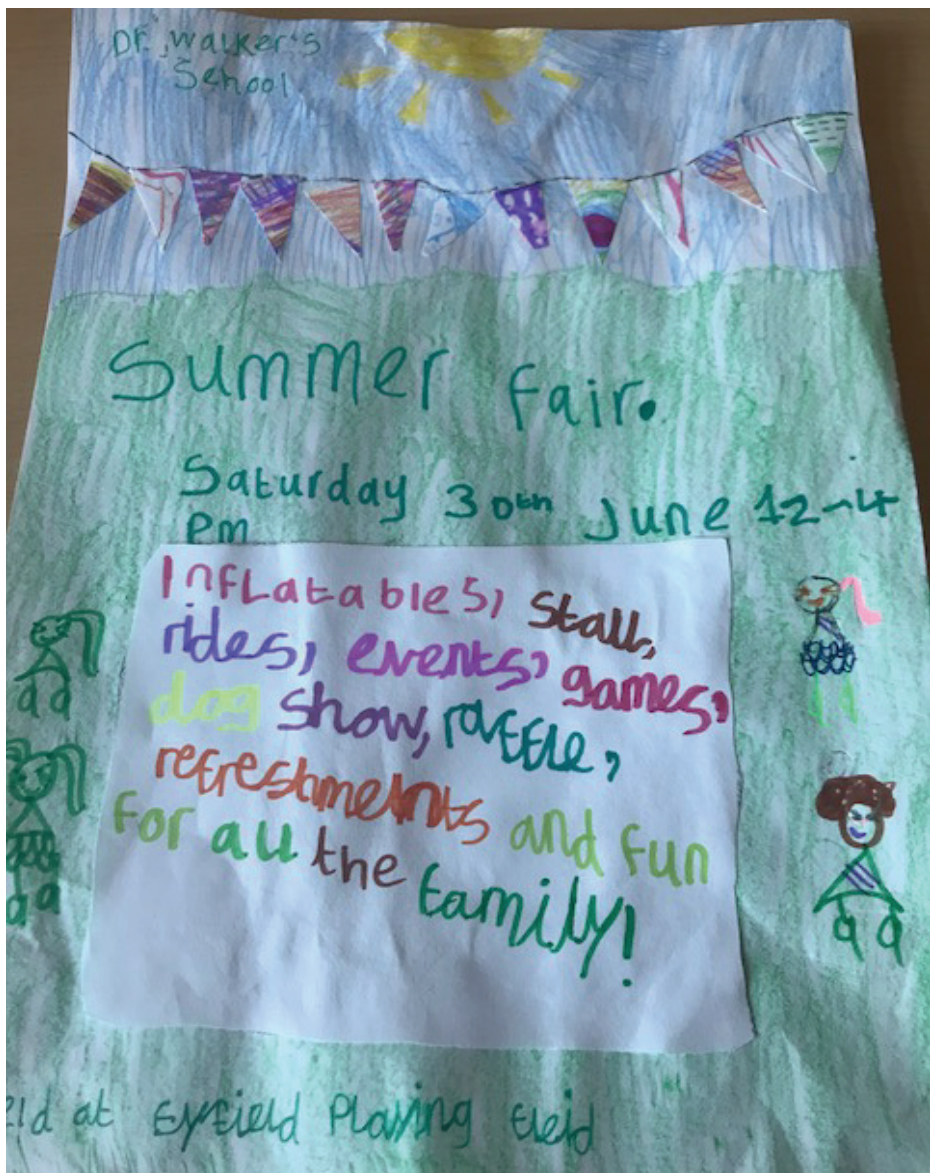 Dr. Walker's
School
Summer fair.
Saturday 30th June 12-4
pm
Inflatables, Stall,
rides, events, games,
dog show, raffle,
refreshments and fun
for all the family!
eld at Fyfield Playing Field